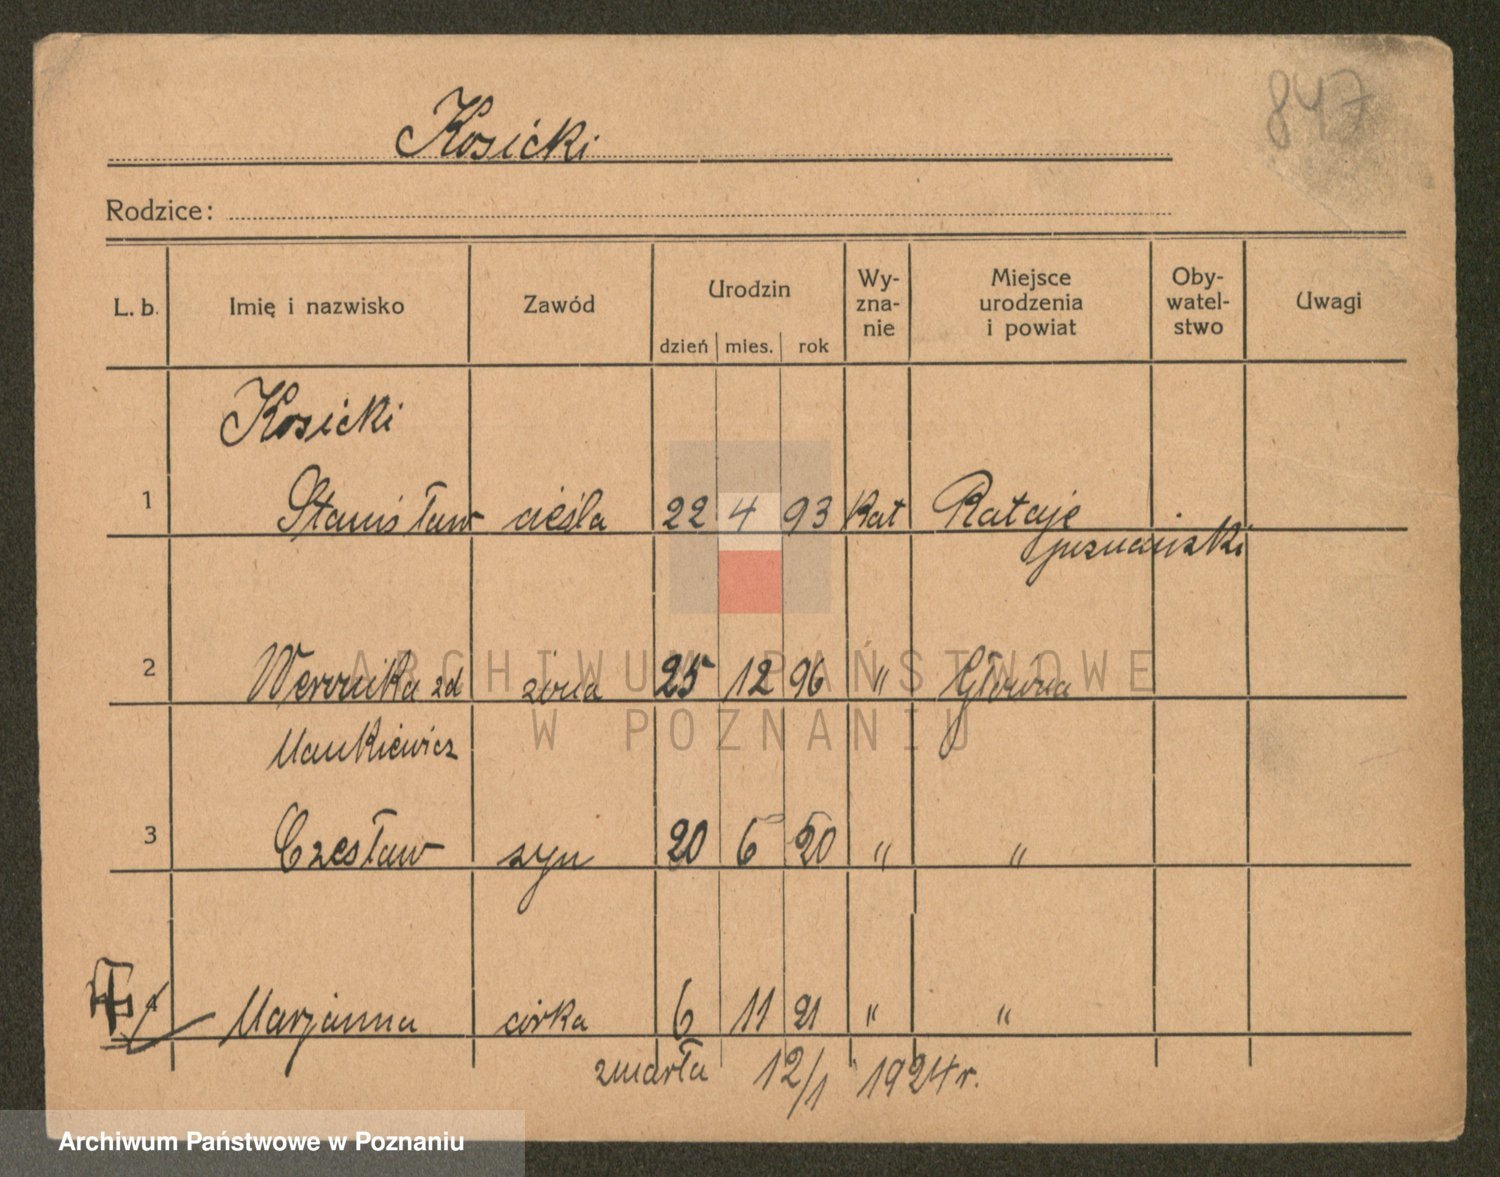 847
Kosicki
Rodzice:
L. b. Imię i nazwisko Zawód Urodzin dzień mies. rok Wy-zna-nie Miejsce urodzenia i powiat Oby-watel-stwo Uwagi
Kosicki
1 Stanisław cieśla 22 4 93 Kat Rataje
poznański
2 Weronika zd żona 25 12 96 " Główna
Mankiewicz
3 Czesław syn 20 6 20 " "
4 Marjanna córka 6 11 21 " "
zmarła 12/1 1924 r.
ARCHIWUM PAŃSTWOWE
W POZNANIU
Archiwum Państwowe w Poznaniu